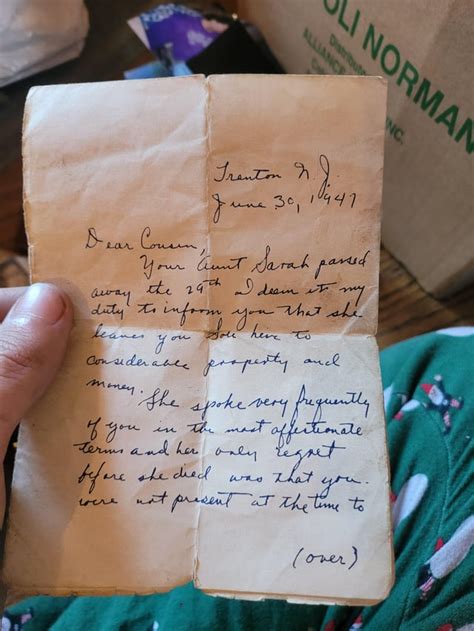 OLI NORMAN
Distribut
ALLIANCE
INC.
Trenton N.J.
June 30, 1947
Dear Cousin,
Your Aunt Sarah passed
away the 29th I deem it my
duty to inform you that she
leaves you Sole heir to
considerable property and
money.
She spoke very frequently
of you in the most affectionate
terms and her only regret
before she died was that you
were not present at the time to
(over)